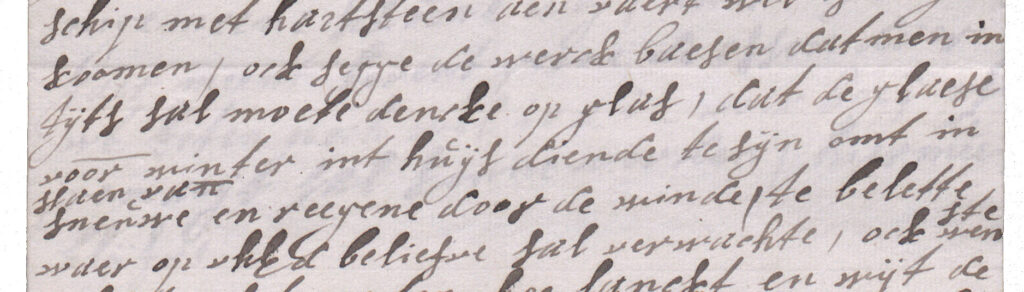 schip met hartsteen aen vaert
koomen, ock segge de werck baesen datmen in
tijts sal moete dencke op glas, dat de glaese
voor winter int huijs diende te sijn omt in
slaen van
sneúwe en reegene door de winde, te belette
waer op uhEd beliefve sal verwachte, ock wen
ste
en wijt de